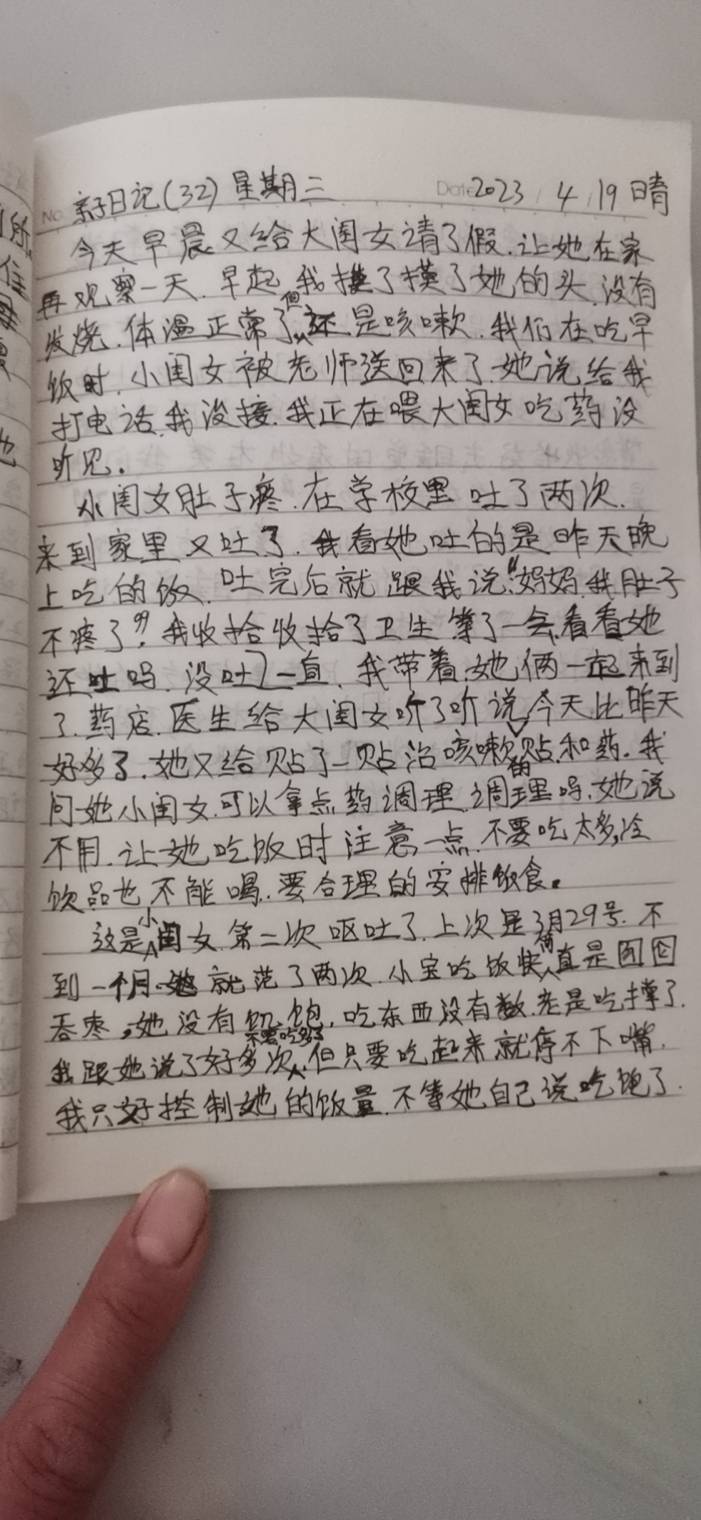 No. 亲子日记(32) 星期三 Date 2023 / 4 / 19 晴
今天早晨又给大闺女请了假.让她在家
再观察一天.早起我摸了摸了她的头.没有
发烧.体温正常了.但还是咳嗽.我们在吃早
饭时.小闺女被老师送回来了.她说给我
打电话.我没接.我正在喂大闺女吃药没
听见.
小闺女肚子疼.在学校里吐了两次.
来到家里又吐了.我看她吐的是昨天晚
上吃的饭.吐完后就跟我说"妈妈.我肚子
不疼了"?我收拾收拾了卫生等了一会.看看她
还吐吗.没吐一直.我带着她俩一起来到
了.药店.医生给大闺女听了听说.今天比昨天
好多了.她又给贴了一贴治咳嗽的贴.和药.我
问她小闺女.可以拿点药调理.调理吗.她说
不用.让她吃饭时注意一点.不要吃太多.冷
饮品也不能喝.要合理的安排饮食。
这是小闺女第二次呕吐了.上次是3月29号.不
到一个月.她就范了两次.小宝吃饭快简直是囫囵
吞枣,她没有饥.饱.吃东西没有数.老是吃撑了.
我跟她说了好多次不要吃多了.但只要吃起来就停不下嘴.
我只好控制她的饭量.不等她自己说吃饱了.